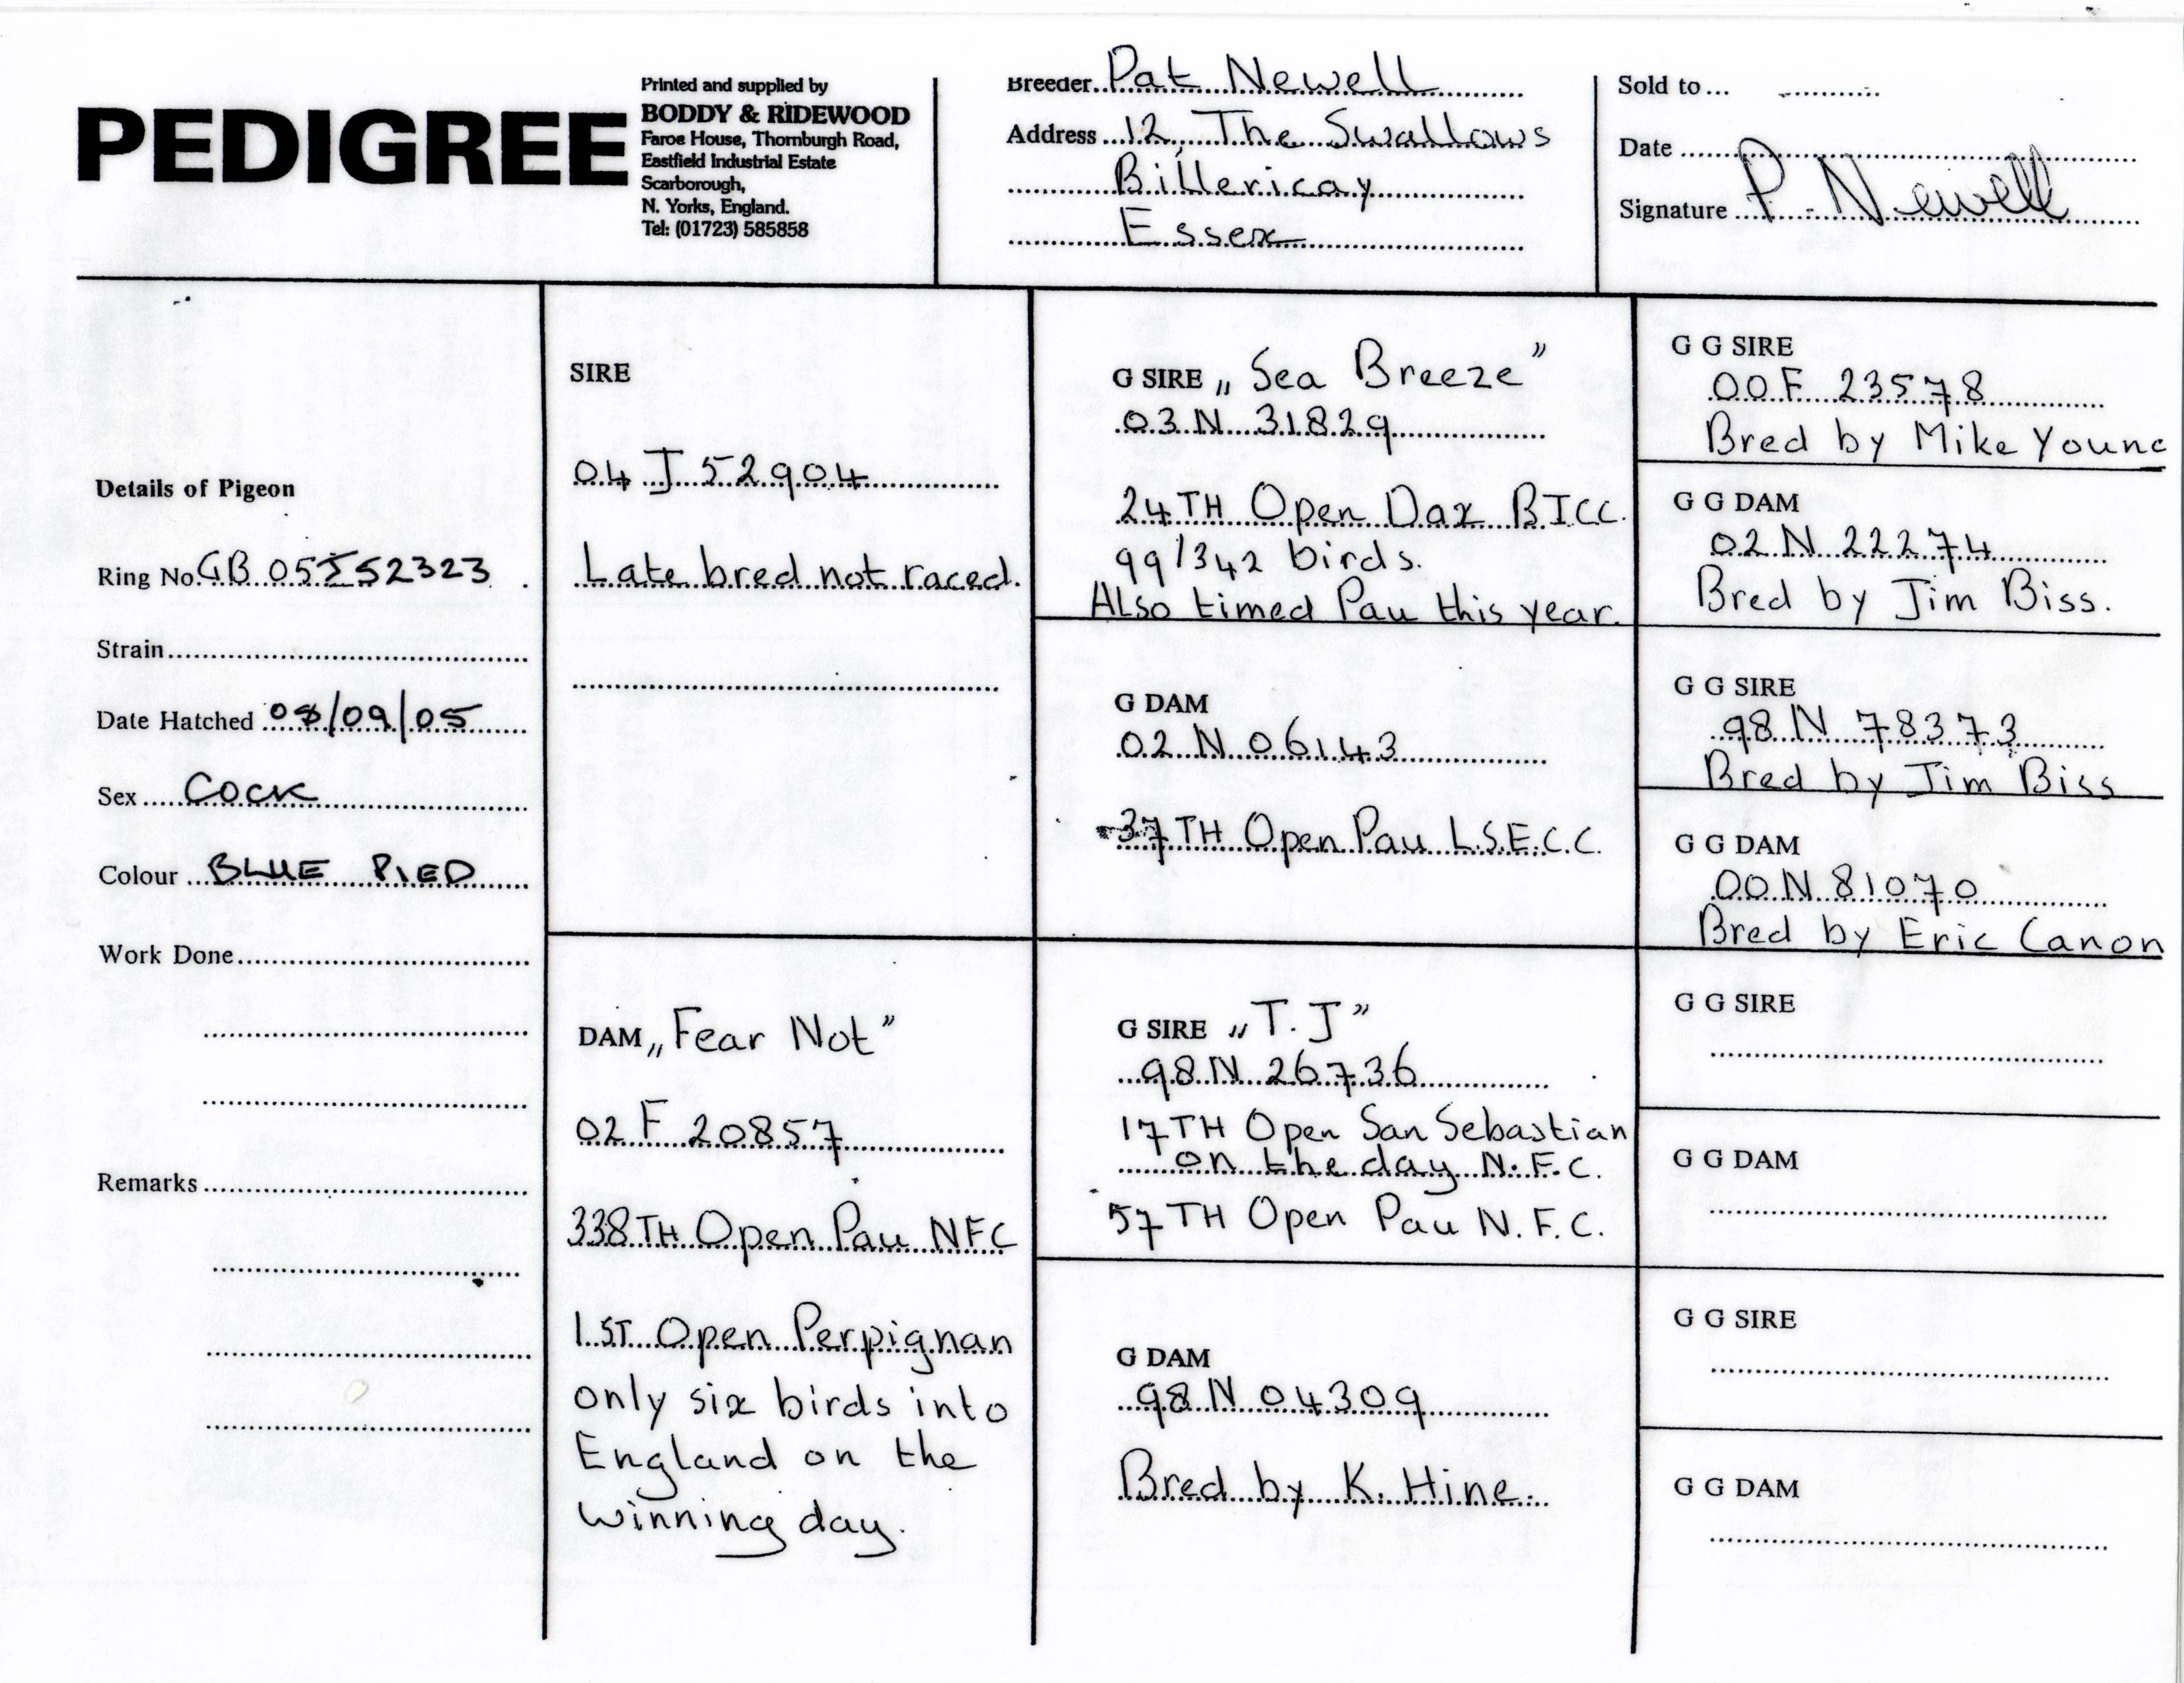 PEDIGREE
Printed and supplied by
BODDY & RIDEWOOD
Faroe House, Thornburgh Road,
Eastfield Industrial Estate
Scarborough,
N. Yorks, England.
Tel: (01723) 585858
Breeder Pat Newell
Address 12, The Swallows
Billericay
Essex
Sold to
Date
Signature P. Newell
Details of Pigeon
Ring No. GB 05J52323
Strain
Date Hatched 08/09/05
Sex COCK
Colour BLUE PIED
Work Done
Remarks
SIRE
04 J 52904
Late bred not raced.
DAM "Fear Not"
02 F 20857
338TH Open Pau NFC
1ST Open Perpignan
only six birds into
England on the
winning day.
G SIRE "Sea Breeze"
03 N 31829
24TH Open Dax B.I.C.C.
99/342 birds.
ALso timed Pau this year.
G DAM
02 N 06143
37TH Open Pau L.S.E.C.C.
G SIRE "T.J"
98 N 26736
17TH Open San Sebastian
on the day N.F.C.
57TH Open Pau N.F.C.
G DAM
98 N 04309
Bred by K. Hine.
G G SIRE
00 F 23578
Bred by Mike Young
G G DAM
02 N 22274
Bred by Jim Biss.
G G SIRE
98 N 78373
Bred by Jim Biss
G G DAM
00 N 81070
Bred by Eric Canon
G G SIRE
G G DAM
G G SIRE
G G DAM